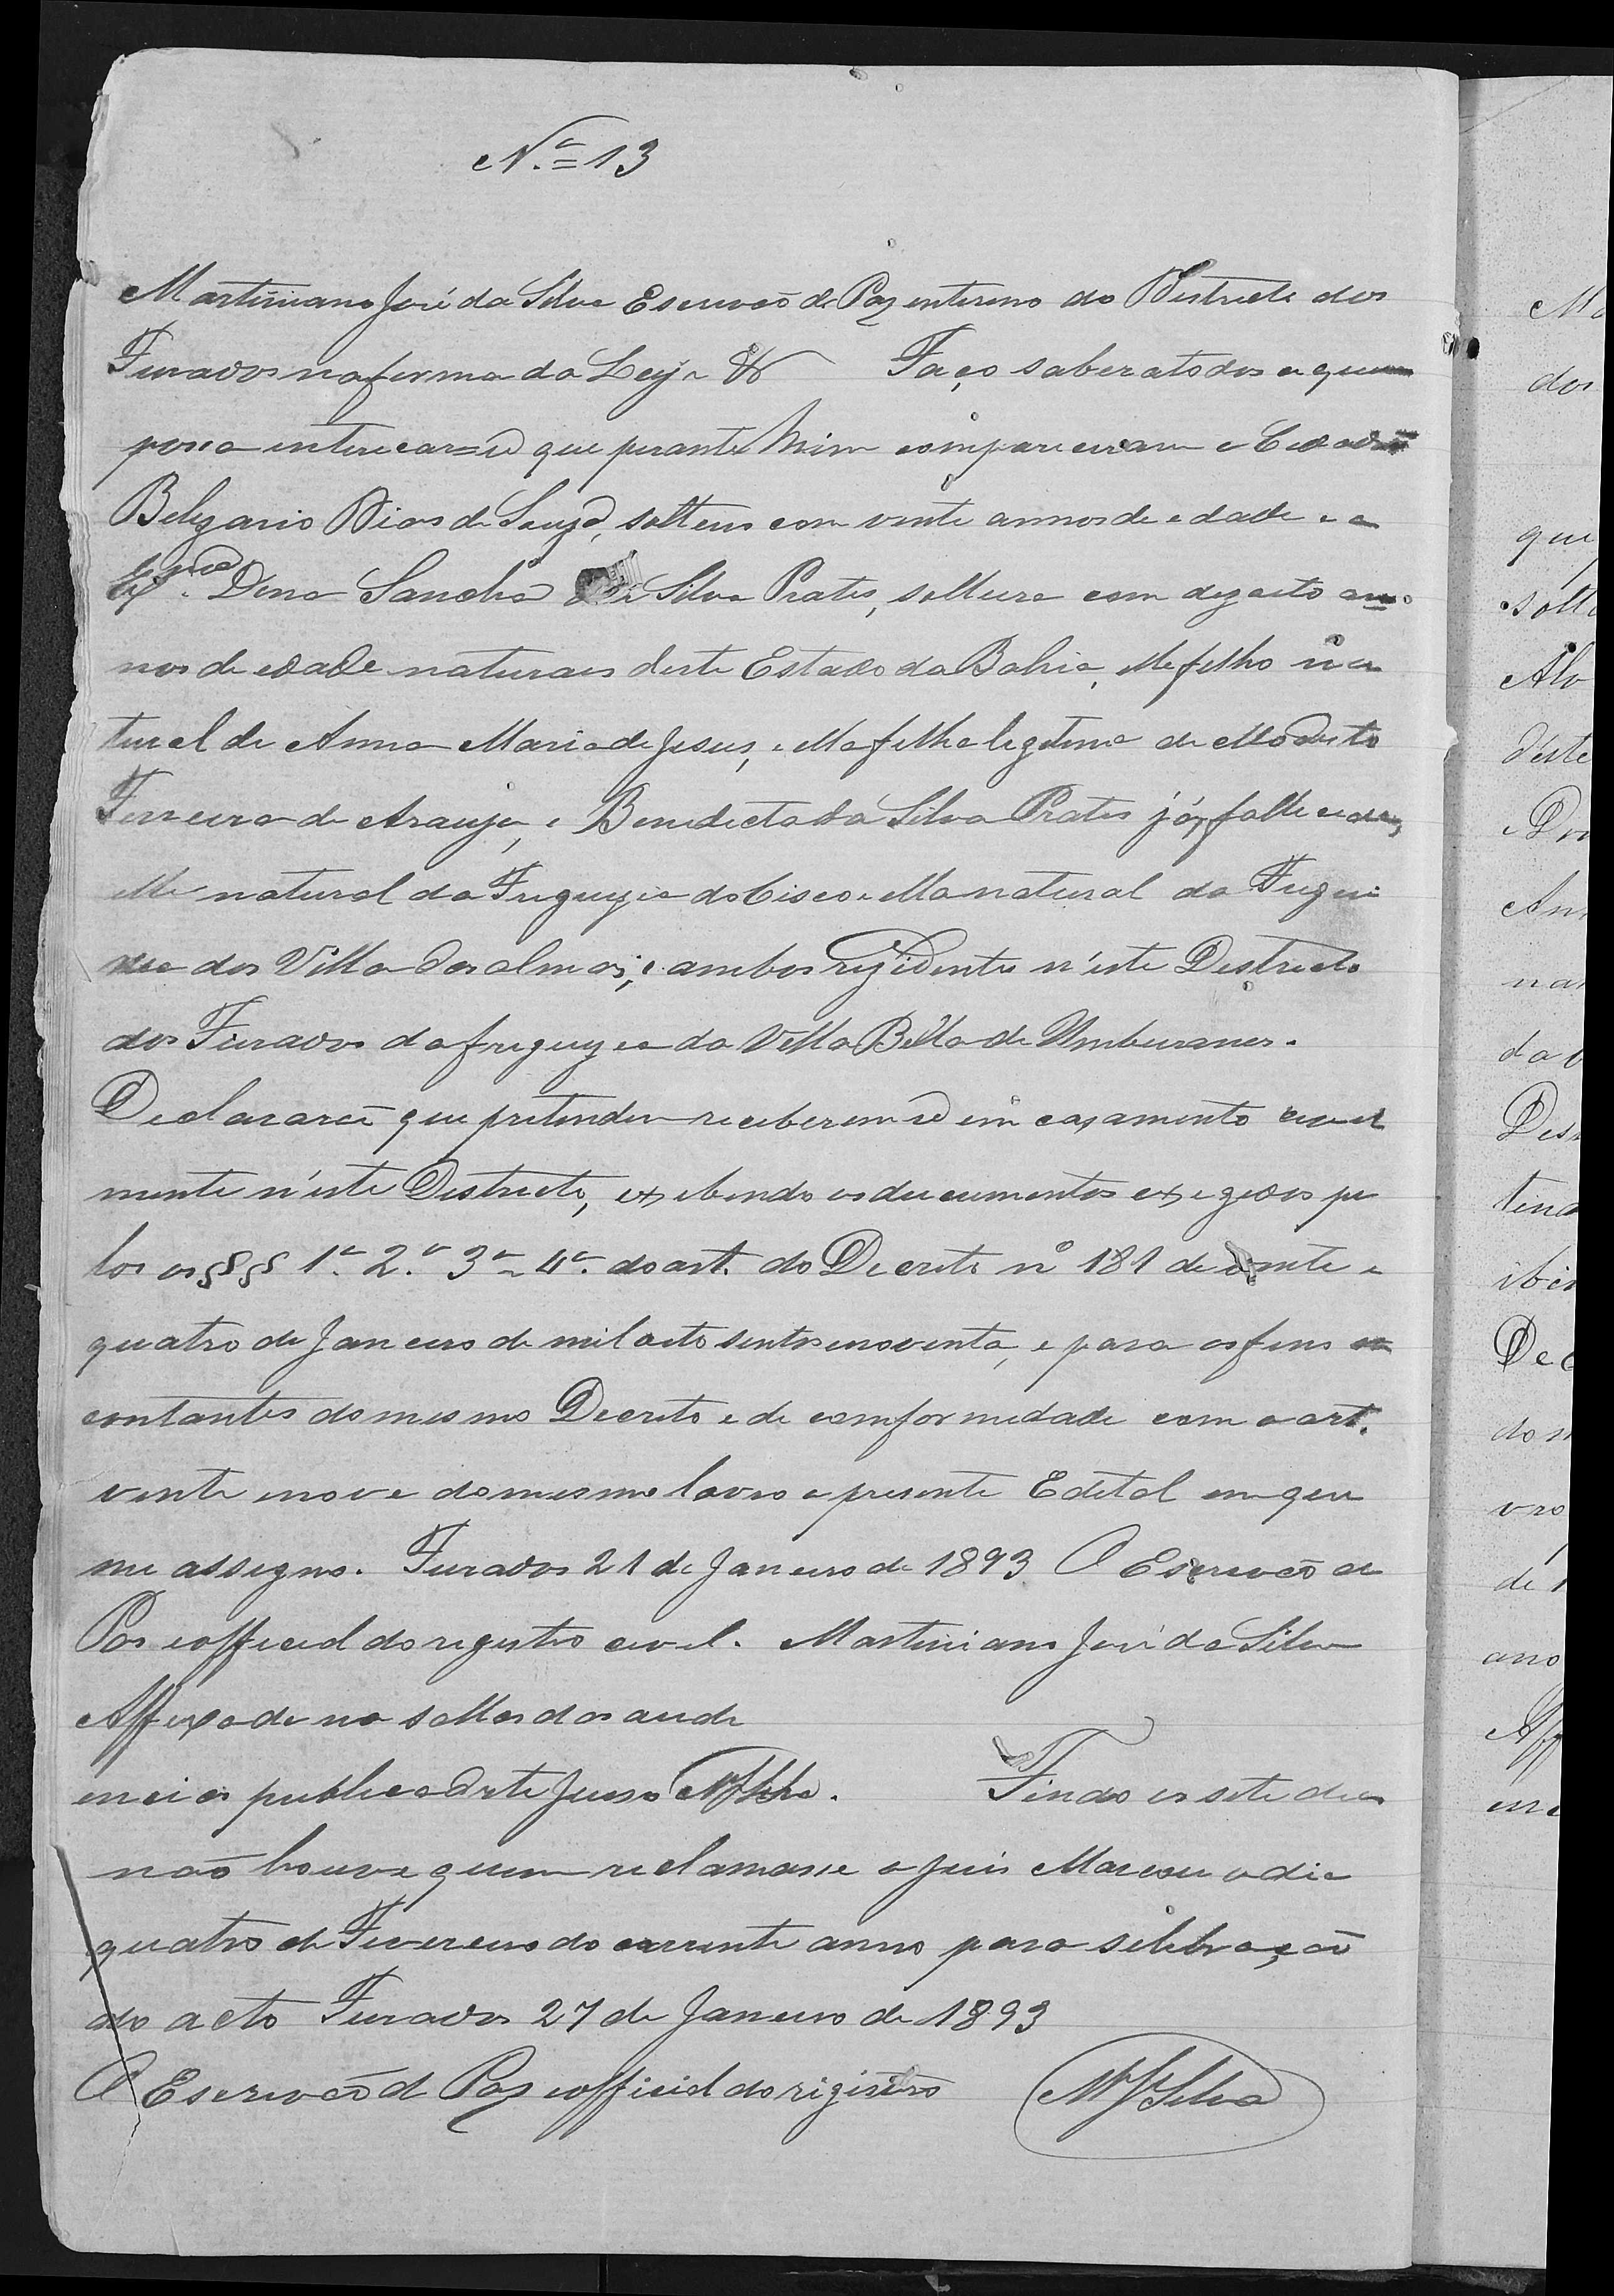 N.º=13
Martiniano José da Silva Escrivão de Paz enterino do Destricto dos
Furados na forma da Ley & Faço saber a todos a quem
possa interecar=se que perante mim compareceram o Cidadão
Belizario Dias de Souza, solteiro com vinte annos de edade e a
Exma. Dona Sancha da Silva Prates, solteira com dezoito an=
nos de edade naturaes deste Estado da Bahia, elle filho na
tural de Anna Maria de Jesus, e ella filha legitima de Modesto
Ferreira de Araujo, e Benedicta da Silva Prates já fallecidos,
elle natural da Freguezia do Cisco e ella natural da Fregue
zia dos Villa das almas, e ambos rezidentes n'este Destricto
dos Furados da freguezia da Villa Bella de Umburanas.
Declararão que pretendem receberem-se em cazamento civil
mente n'este Destricto, exebindo os ducumentos exegidos pe
los os §§§ 1º. 2.º 3º e 4º. do art. do Decreto nº 181 de vinte e
quatro de Janeiro de mil oito sentos e noventa, e para os fins
contantes do mesmo Decreto e de comformedade com o art.
vente e nove do mesmo lavro o presente Edetal em que
me assegno. Furados 21 de Janeiro de 1893 O Escrivão de
Pas e official do registro civel. Martiniano José da Silva
Affixado na sallas das aude
encias publica d'este Juiso MJSilva. Findo os sete dias
não houve quem reclamasse o Juis Marcou o dia
quatro de Fevereiro do corrente anno para selebração
do acto Furados 27 de Janeiro de 1893
O Escrivão de Paz e official do rigistro MJSilva
Ma
dos
que
solte
Alv
d'este
Dr
Ann
na
da
Des
tend
ibin
Dec
do m
vro
de 1
ano
Aff
enc